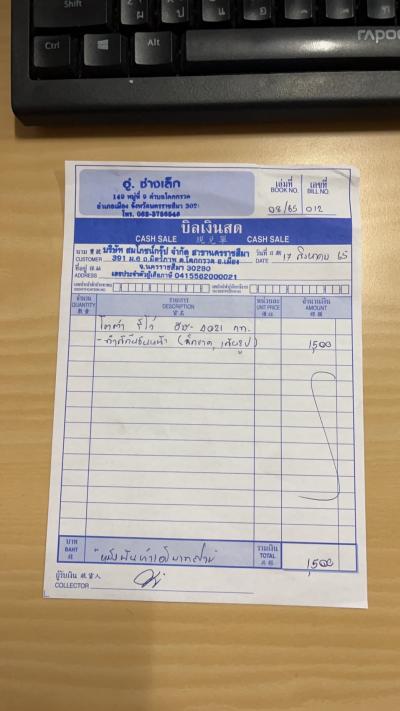 Shift
Ctrl
Alt
rapoo
อู่ ช่างเล็ก
149 หมู่ที่ 9 ตำบลโคกกรวด
อำเภอเมือง จังหวัดนครราชสีมา
โทร.
เล่มที่ เลขที่
BOOK NO. BILL NO.
08/65 012
บิลเงินสด
CASH SALE 現兌單 CASH SALE
นาม บริษัท สมโภชน์กรุ๊ป จำกัด สาขานครราชสีมา วันที่ 17 สิงหาคม 65
CUSTOMER 391 ม.6 ถ.มิตรภาพ ต.โคกกรวด อ.เมือง DATE
ที่อยู่ จ.นครราชสีมา 30280
ADDRESS เลขประจำตัวผู้เสียภาษี 0415562000021
จำนวน รายการ หน่วยละ จำนวนเงิน
QUANTITY DESCRIPTION UNIT PRICE AMOUNT
โตต้า รีโว่ 4021 กท.
- ทำสีกันชนหน้า 1,500
บาท รวมเงิน
BAHT TOTAL
หนึ่งพันห้าร้อยบาทถ้วน 1,500
ผู้รับเงิน
COLLECTOR